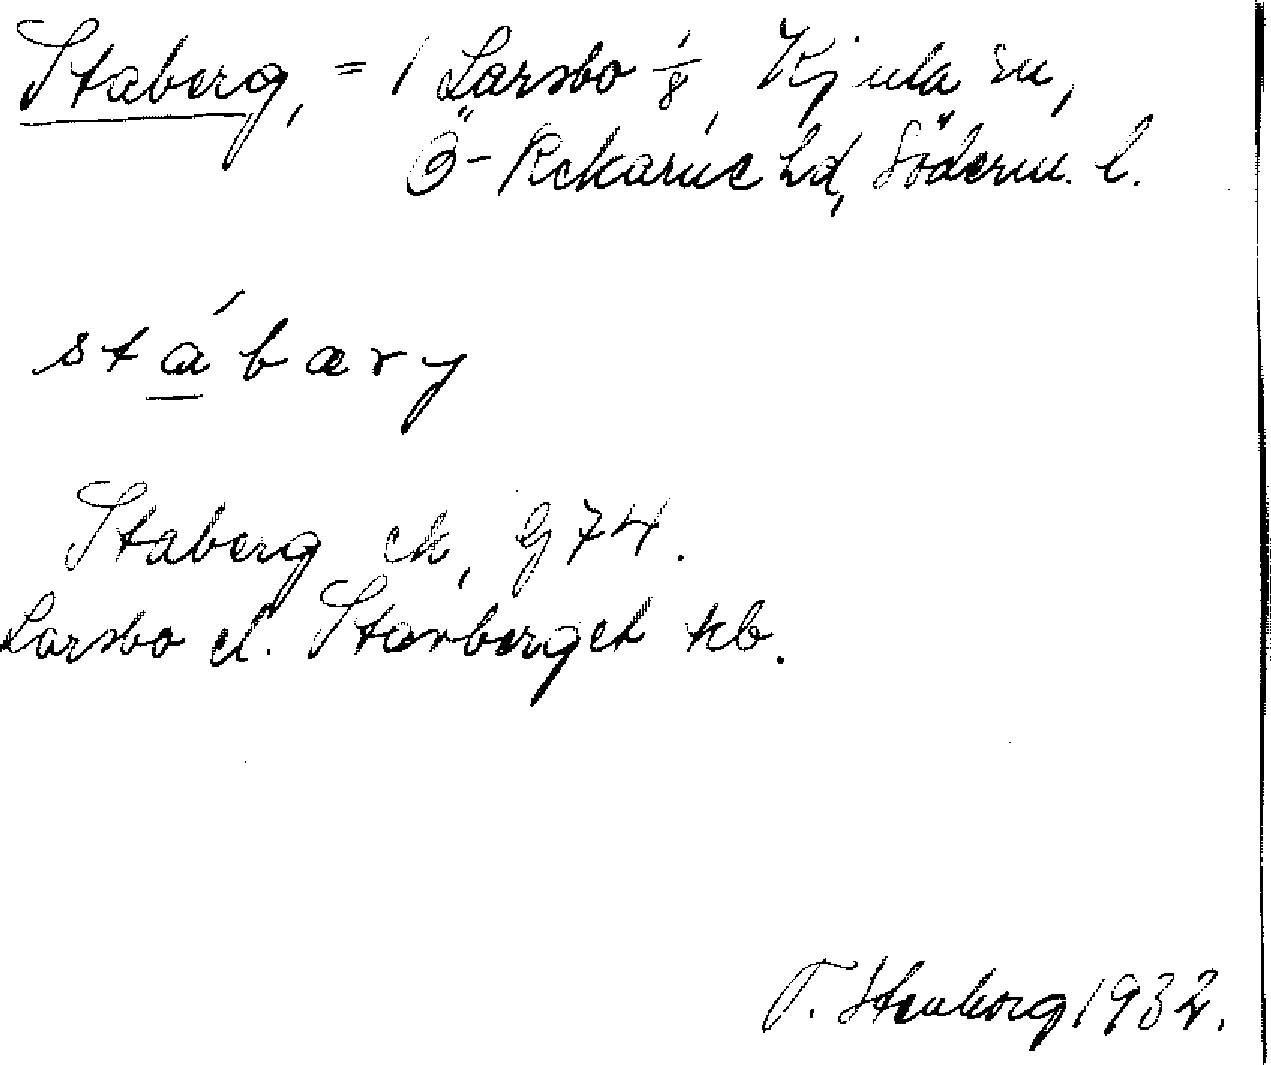 Staberg, = 1 Larsbo 1/8, Kjula sn,
Ö-Rekarne hd, Söderm. l.
stábæry
Staberg ek, G 74.
Larsbo el. Starberget kb.
T. Stenborg 1932.